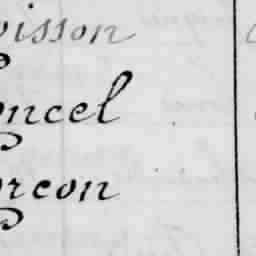 oisson
oncel
orcon